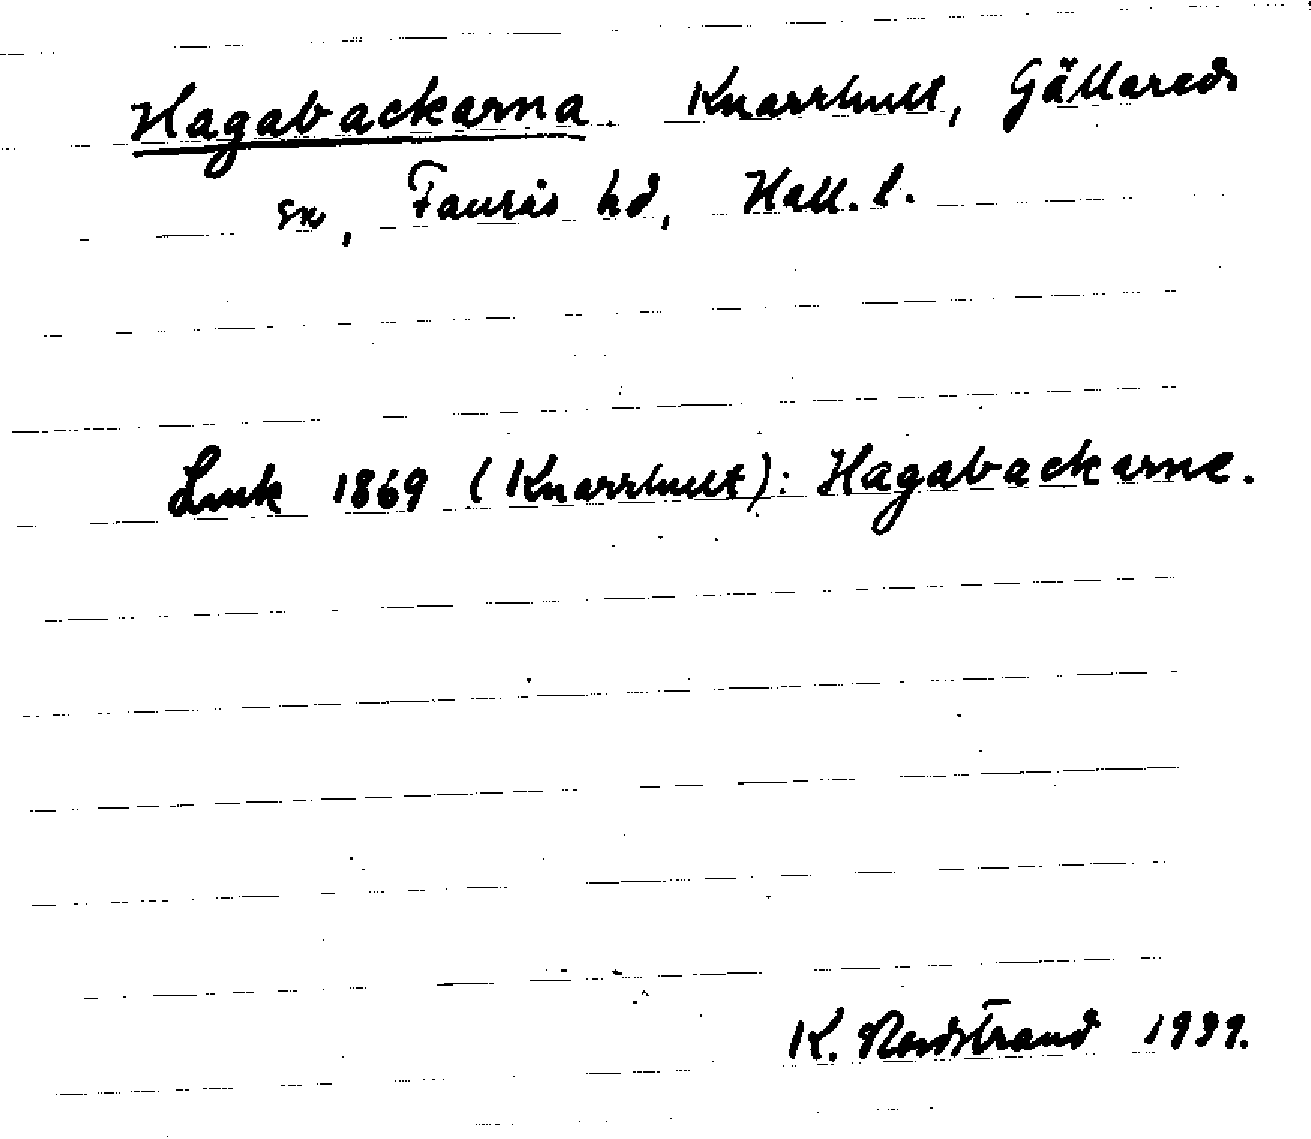 Hagabackarna Knarrhult, Gällareds
sn, Faurås hd, Hall. l.
Lmk 1869 (Knarrhult): Hagabackarne.
K. Nordstrand 1939.